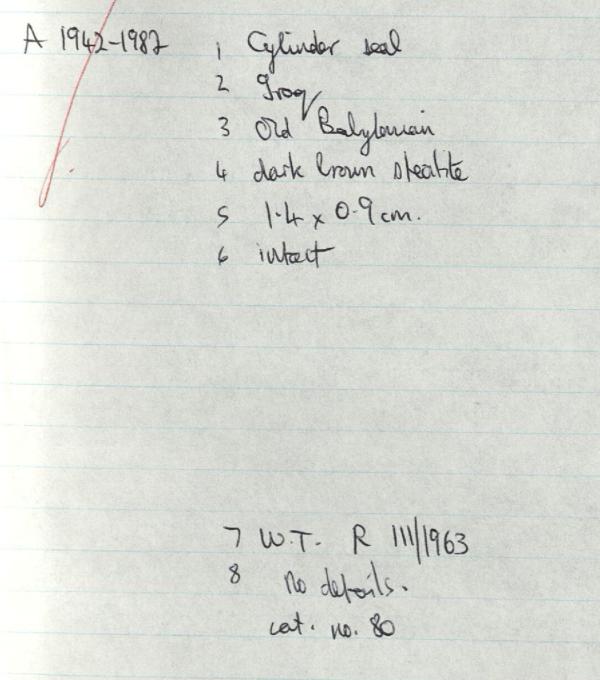 A 1942-1982 1 Cylinder seal
2 Iraq
3 Old Babylonian
4 dark brown steatite
5 1.4 x 0.9 cm.
6 intact
7 W.T. R 111/1963
8 no details.
cat. no. 80